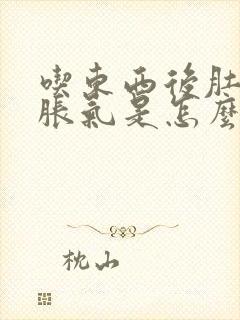 喫東西後肚
脹氣是怎麼
枕山